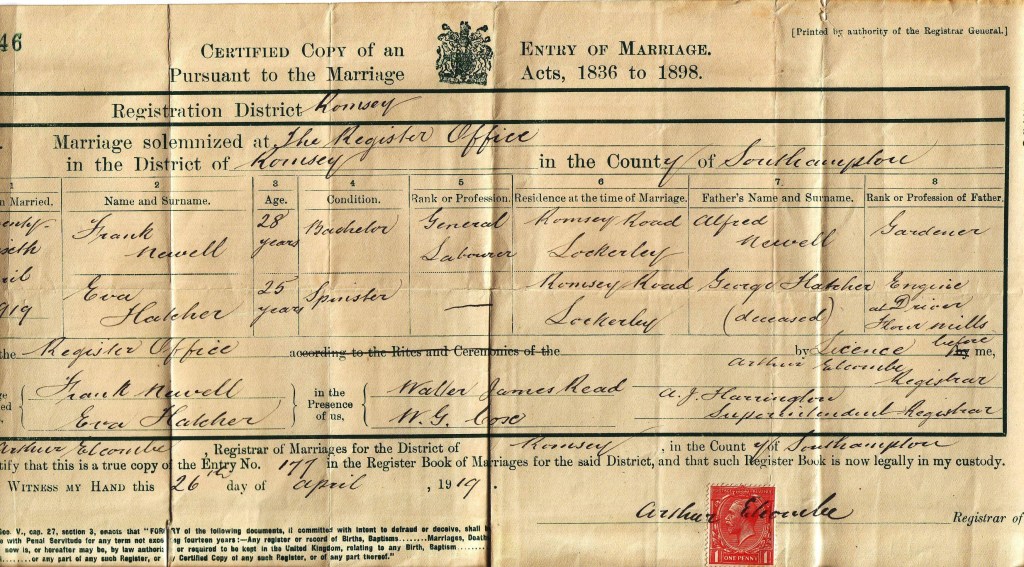 46
[Printed by authority of the Registrar General.]
CERTIFIED COPY OF AN ENTRY OF MARRIAGE.
PURSUANT TO THE MARRIAGE ACTS, 1836 TO 1898.
Registration District Romsey
Marriage solemnized at The Register Office
in the District of Romsey in the County of Southampton
1 2 3 4 5 6 7 8
n Married. Name and Surname. Age. Condition. Rank or Profession. Residence at the time of Marriage. Father's Name and Surname. Rank or Profession of Father.
enty- Frank 28 Bachelor General Romsey Road Alfred Gardener
sixth Newell years Labourer Lockerley Newell
ril Eva 25 Spinster — Romsey Road George Hatcher Engine
919 Hatcher years Lockerley (deceased) Driver
at Flour mills
the Register Office according to the Rites and Ceremonies of the by Licence before by me,
Frank Newell in the Walter James Read Arthur Elcombe Registrar
Eva Hatcher Presence of us, W. G. Cox A. J. Harrington Superintendent Registrar
Arthur Elcombe, Registrar of Marriages for the District of Romsey, in the County of Southampton
tify that this is a true copy of the Entry No. 177 in the Register Book of Marriages for the said District, and that such Register Book is now legally in my custody.
WITNESS MY HAND this 26th day of April, 1919.
Arthur Elcombe Registrar of
Geo. V., cap. 27, section 3, enacts that "FORGERY of the following documents, if committed with intent to defraud or deceive, shall b
e with Penal Servitude for any term not exce ing fourteen years:—Any register or record of Births, Baptisms........Marriages, Death
now is, or hereafter may be, by law authori or required to be kept in the United Kingdom, relating to any Birth, Baptism........
........or any part of any such Register, or y Certified Copy of any such Register, or of any part thereof."
1 ONE PENNY 1